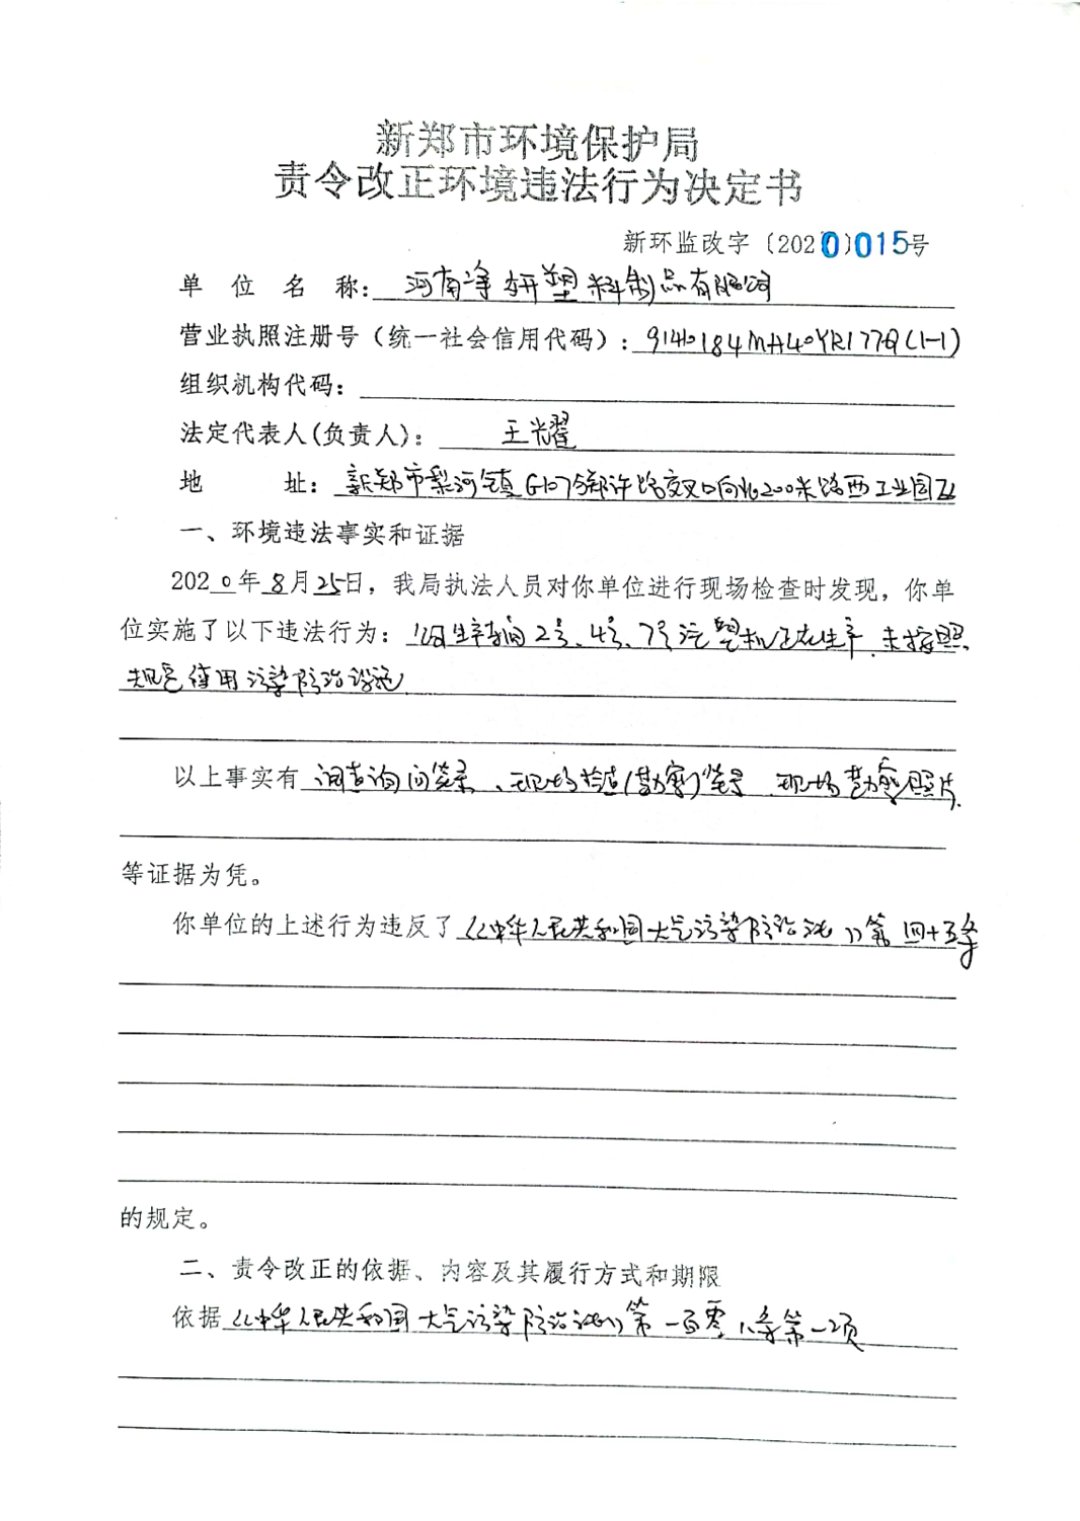 新郑市环境保护局
责令改正环境违法行为决定书
新环监改字〔2020〕015号
单位名称：河南净妍塑料制品有限公司
营业执照注册号（统一社会信用代码）：9140184MA40YR177Q(1-1)
组织机构代码：
法定代表人(负责人)：王光耀
地址：新郑市梨河镇G107与郑许路交叉口向北200米路西工业园区
一、环境违法事实和证据
2020年8月25日，我局执法人员对你单位进行现场检查时发现，你单
位实施了以下违法行为：生产车间2号、4号、7号注塑机正在生产，未按照
规定使用污染防治设施
以上事实有调查询问笔录、现场检查(勘察)笔录、现场勘察照片
等证据为凭。
你单位的上述行为违反了《中华人民共和国大气污染防治法》第四十五条
的规定。
二、责令改正的依据、内容及其履行方式和期限
依据《中华人民共和国大气污染防治法》第一百零八条第一项